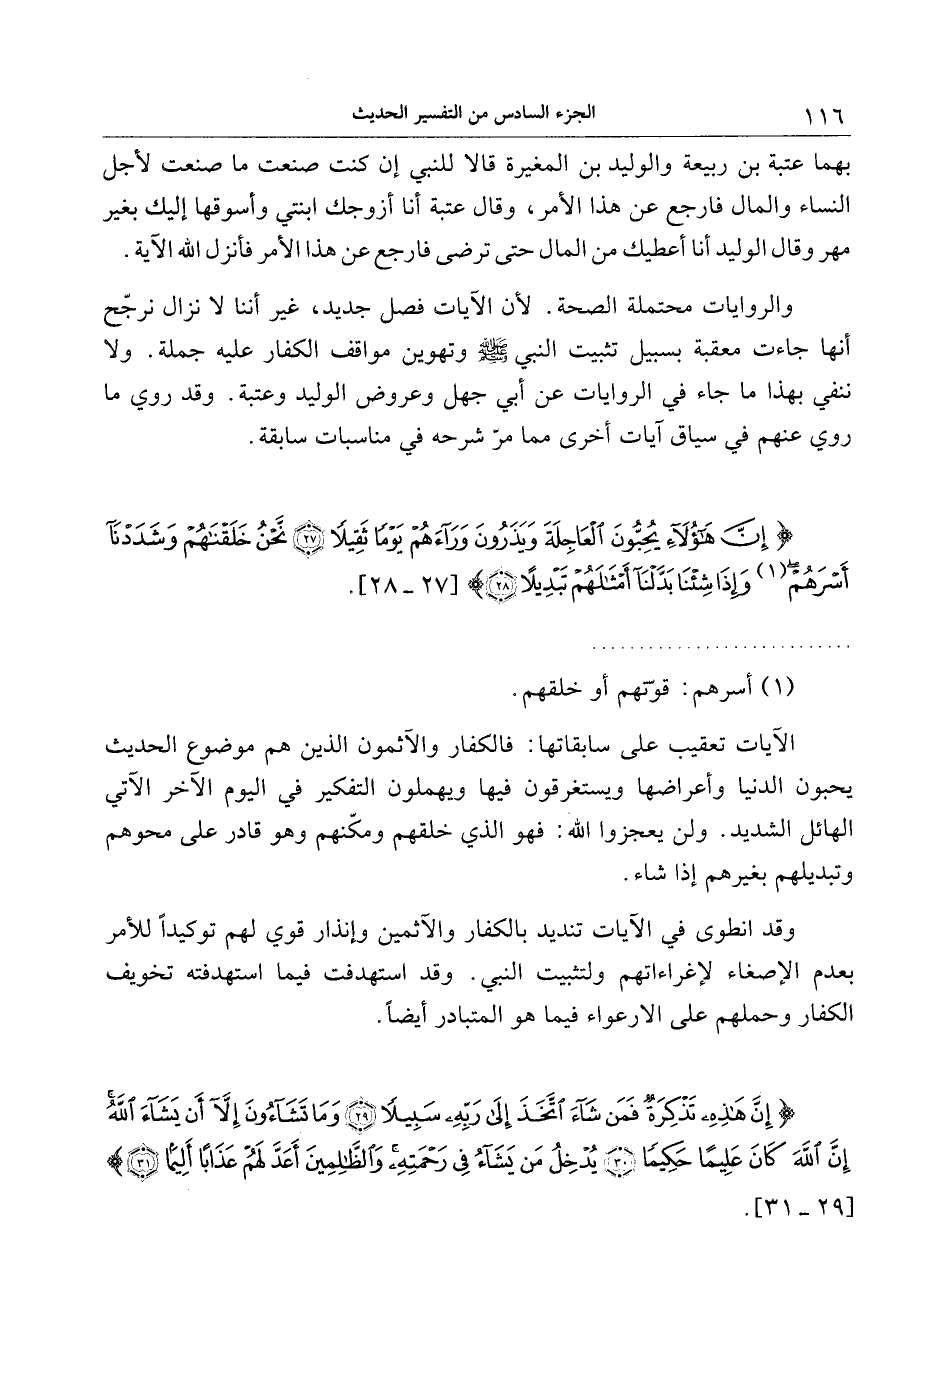 ١١٦ الجزء السادس من التفسير الحديث
بهما عتبة بن ربيعة والوليد بن المغيرة قالا للنبي إن كنت صنعت ما صنعت لأجل
النساء والمال فارجع عن هذا الأمر، وقال عتبة أنا أزوجك ابنتي وأسوقها إليك بغير
مهر وقال الوليد أنا أعطيك من المال حتى ترضى فارجع عن هذا الأمر فأنزل الله الآية.
والروايات محتملة الصحة. لأن الآيات فصل جديد، غير أننا لا نزال نرجّح
أنها جاءت معقبة بسبيل تثبيت النبي ﷺ وتهوين مواقف الكفار عليه جملة. ولا
ننفي بهذا ما جاء في الروايات عن أبي جهل وعروض الوليد وعتبة. وقد روي ما
روي عنهم في سياق آيات أخرى مما مرّ شرحه في مناسبات سابقة.
﴿ إِنَّ هَٰٓؤُلَآءِ يُحِبُّونَ ٱلْعَاجِلَةَ وَيَذَرُونَ وَرَآءَهُمْ يَوْمًا ثَقِيلًا ٢٧ نَّحْنُ خَلَقْنَٰهُمْ وَشَدَدْنَآ
أَسْرَهُمْ ۖ (١) وَإِذَا شِئْنَا بَدَّلْنَآ أَمْثَٰلَهُمْ تَبْدِيلًا ٢٨ ﴾ [٢٧ ـ ٢٨].
..........................
(١) أسرهم: قوّتهم أو خلقهم.
الآيات تعقيب على سابقاتها: فالكفار والآثمون الذين هم موضوع الحديث
يحبون الدنيا وأعراضها ويستغرقون فيها ويهملون التفكير في اليوم الآخر الآتي
الهائل الشديد. ولن يعجزوا الله: فهو الذي خلقهم ومكّنهم وهو قادر على محوهم
وتبديلهم بغيرهم إذا شاء.
وقد انطوى في الآيات تنديد بالكفار والآثمين وإنذار قوي لهم توكيداً للأمر
بعدم الإصغاء لإغراءاتهم ولتثبيت النبي. وقد استهدفت فيما استهدفته تخويف
الكفار وحملهم على الارعواء فيما هو المتبادر أيضاً.
﴿ إِنَّ هَٰذِهِۦ تَذْكِرَةٌ ۖ فَمَن شَآءَ ٱتَّخَذَ إِلَىٰ رَبِّهِۦ سَبِيلًا ٢٩ وَمَا تَشَآءُونَ إِلَّآ أَن يَشَآءَ ٱللَّهُ ۚ
إِنَّ ٱللَّهَ كَانَ عَلِيمًا حَكِيمًا ٣٠ يُدْخِلُ مَن يَشَآءُ فِى رَحْمَتِهِۦ ۚ وَٱلظَّٰلِمِينَ أَعَدَّ لَهُمْ عَذَابًا أَلِيمًا ٣١ ﴾
[٢٩ ـ ٣١].